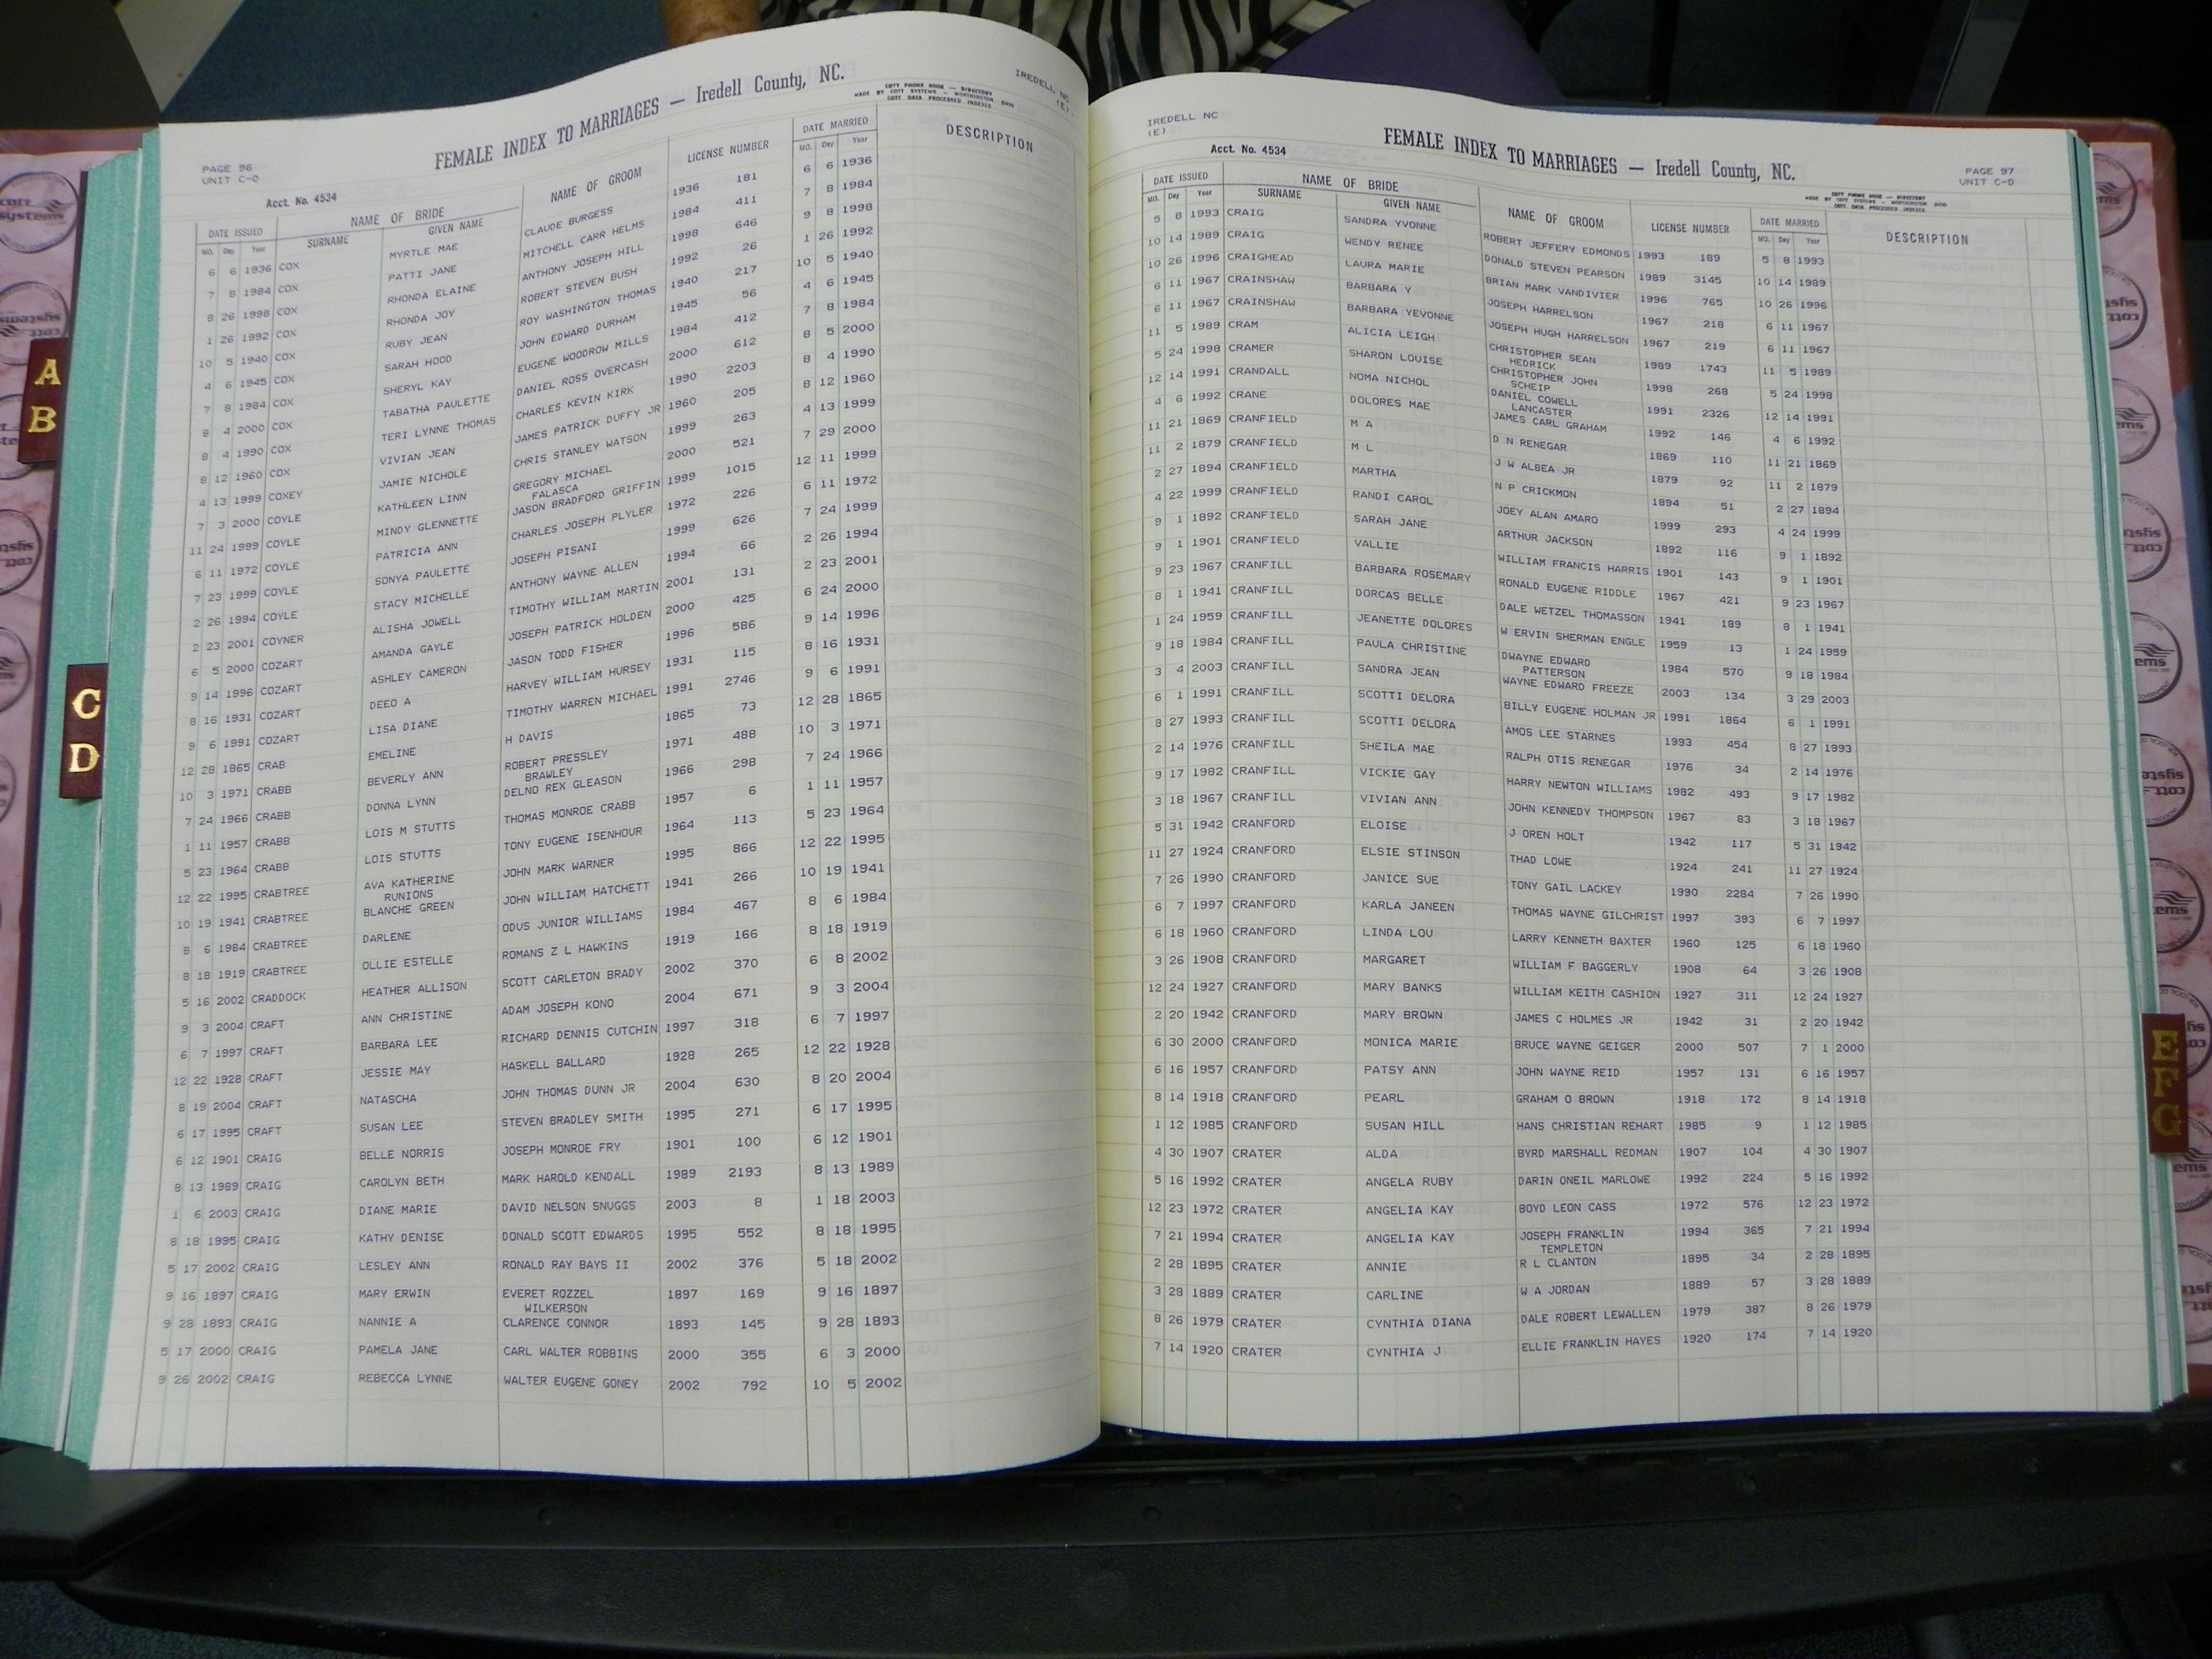 PAGE 96
UNIT C-D
FEMALE INDEX TO MARRIAGES — Iredell County, NC.
COTT PHONE BOOK — DIRECTORY
MADE BY COTT SYSTEMS — WORTHINGTON OHIO
COTT DATA PROCESSED INDEXES
IREDELL NC
(E)
Acct. No. 4534
DATE ISSUED NAME OF BRIDE NAME OF GROOM LICENSE NUMBER DATE MARRIED DESCRIPTION
MO. Day Year SURNAME GIVEN NAME MO. Day Year
6 6 1936 COX MYRTLE MAE CLAUDE BURGESS 1936 181 6 6 1936
7 8 1984 COX PATTI JANE MITCHELL CARR HELMS 1984 411 7 8 1984
8 26 1998 COX RHONDA ELAINE ANTHONY JOSEPH HILL 1998 646 9 8 1998
1 26 1992 COX RHONDA JOY ROBERT STEVEN BUSH 1992 26 1 26 1992
10 5 1940 COX RUBY JEAN ROY WASHINGTON THOMAS 1940 217 10 5 1940
4 6 1945 COX SARAH HOOD JOHN EDWARD DURHAM 1945 56 4 6 1945
7 8 1984 COX SHERYL KAY EUGENE WOODROW MILLS 1984 412 7 8 1984
8 4 2000 COX TABATHA PAULETTE DANIEL ROSS OVERCASH 2000 612 8 5 2000
8 4 1990 COX TERI LYNNE THOMAS CHARLES KEVIN KIRK 1990 2203 8 4 1990
8 12 1960 COX VIVIAN JEAN JAMES PATRICK DUFFY JR 1960 205 8 12 1960
4 13 1999 COXEY JAMIE NICHOLE CHRIS STANLEY WATSON 1999 263 4 13 1999
7 3 2000 COYLE KATHLEEN LINN GREGORY MICHAEL 2000 521 7 29 2000
FALASCA
11 24 1999 COYLE MINDY GLENNETTE JASON BRADFORD GRIFFIN 1999 1015 12 11 1999
6 11 1972 COYLE PATRICIA ANN CHARLES JOSEPH PLYLER 1972 226 6 11 1972
7 23 1999 COYLE SONYA PAULETTE JOSEPH PISANI 1999 626 7 24 1999
2 26 1994 COYLE STACY MICHELLE ANTHONY WAYNE ALLEN 1994 66 2 26 1994
2 23 2001 COYNER ALISHA JOWELL TIMOTHY WILLIAM MARTIN 2001 131 2 23 2001
6 5 2000 COZART AMANDA GAYLE JOSEPH PATRICK HOLDEN 2000 425 6 24 2000
9 14 1996 COZART ASHLEY CAMERON JASON TODD FISHER 1996 586 9 14 1996
8 16 1931 COZART DEEO A HARVEY WILLIAM HURSEY 1931 115 8 16 1931
9 6 1991 COZART LISA DIANE TIMOTHY WARREN MICHAEL 1991 2746 9 6 1991
12 28 1865 CRAB EMELINE H DAVIS 1865 73 12 28 1865
10 3 1971 CRABB BEVERLY ANN ROBERT PRESSLEY 1971 488 10 3 1971
BRAWLEY
7 24 1966 CRABB DONNA LYNN DELNO REX GLEASON 1966 298 7 24 1966
1 11 1957 CRABB LOIS M STUTTS THOMAS MONROE CRABB 1957 6 1 11 1957
5 23 1964 CRABB LOIS STUTTS TONY EUGENE ISENHOUR 1964 113 5 23 1964
12 22 1995 CRABTREE AVA KATHERINE JOHN MARK WARNER 1995 866 12 22 1995
RUNIONS
10 19 1941 CRABTREE BLANCHE GREEN JOHN WILLIAM HATCHETT 1941 266 10 19 1941
8 6 1984 CRABTREE DARLENE ODUS JUNIOR WILLIAMS 1984 467 8 6 1984
8 18 1919 CRABTREE OLLIE ESTELLE ROMANS Z L HAWKINS 1919 166 8 18 1919
5 16 2002 CRADDOCK HEATHER ALLISON SCOTT CARLETON BRADY 2002 370 6 8 2002
9 3 2004 CRAFT ANN CHRISTINE ADAM JOSEPH KONO 2004 671 9 3 2004
6 7 1997 CRAFT BARBARA LEE RICHARD DENNIS CUTCHIN 1997 318 6 7 1997
12 22 1928 CRAFT JESSIE MAY HASKELL BALLARD 1928 265 12 22 1928
8 19 2004 CRAFT NATASCHA JOHN THOMAS DUNN JR 2004 630 8 20 2004
6 17 1995 CRAFT SUSAN LEE STEVEN BRADLEY SMITH 1995 271 6 17 1995
6 12 1901 CRAIG BELLE NORRIS JOSEPH MONROE FRY 1901 100 6 12 1901
8 13 1989 CRAIG CAROLYN BETH MARK HAROLD KENDALL 1989 2193 8 13 1989
1 6 2003 CRAIG DIANE MARIE DAVID NELSON SNUGGS 2003 8 1 18 2003
8 18 1995 CRAIG KATHY DENISE DONALD SCOTT EDWARDS 1995 552 8 18 1995
5 17 2002 CRAIG LESLEY ANN RONALD RAY BAYS II 2002 376 5 18 2002
9 16 1897 CRAIG MARY ERWIN EVERET ROZZEL 1897 169 9 16 1897
WILKERSON
9 28 1893 CRAIG NANNIE A CLARENCE CONNOR 1893 145 9 28 1893
5 17 2000 CRAIG PAMELA JANE CARL WALTER ROBBINS 2000 355 6 3 2000
9 26 2002 CRAIG REBECCA LYNNE WALTER EUGENE GONEY 2002 792 10 5 2002
IREDELL NC
(E)
Acct. No. 4534
FEMALE INDEX TO MARRIAGES — Iredell County, NC.
PAGE 97
UNIT C-D
COTT PHONE BOOK — DIRECTORY
MADE BY COTT SYSTEMS — WORTHINGTON OHIO
COTT DATA PROCESSED INDEXES
DATE ISSUED NAME OF BRIDE NAME OF GROOM LICENSE NUMBER DATE MARRIED DESCRIPTION
MO. Day Year SURNAME GIVEN NAME MO. Day Year
5 8 1993 CRAIG SANDRA YVONNE ROBERT JEFFERY EDMONDS 1993 189 5 8 1993
10 14 1989 CRAIG WENDY RENEE DONALD STEVEN PEARSON 1989 3145 10 14 1989
10 26 1996 CRAIGHEAD LAURA MARIE BRIAN MARK VANDIVIER 1996 765 10 26 1996
6 11 1967 CRAINSHAW BARBARA Y JOSEPH HARRELSON 1967 218 6 11 1967
6 11 1967 CRAINSHAW BARBARA YEVONNE JOSEPH HUGH HARRELSON 1967 219 6 11 1967
11 5 1989 CRAM ALICIA LEIGH CHRISTOPHER SEAN 1989 1743 11 5 1989
HEDRICK
5 24 1998 CRAMER SHARON LOUISE CHRISTOPHER JOHN 1998 268 5 24 1998
SCHEIP
12 14 1991 CRANDALL NOMA NICHOL DANIEL COWELL 1991 2326 12 14 1991
LANCASTER
4 6 1992 CRANE DOLORES MAE JAMES CARL GRAHAM 1992 146 4 6 1992
11 21 1869 CRANFIELD M A D N RENEGAR 1869 110 11 21 1869
11 2 1879 CRANFIELD M L J W ALBEA JR 1879 92 11 2 1879
2 27 1894 CRANFIELD MARTHA N P CRICKMON 1894 51 2 27 1894
4 22 1999 CRANFIELD RANDI CAROL JOEY ALAN AMARO 1999 293 4 24 1999
9 1 1892 CRANFIELD SARAH JANE ARTHUR JACKSON 1892 116 9 1 1892
9 1 1901 CRANFIELD VALLIE WILLIAM FRANCIS HARRIS 1901 143 9 1 1901
9 23 1967 CRANFILL BARBARA ROSEMARY RONALD EUGENE RIDDLE 1967 421 9 23 1967
8 1 1941 CRANFILL DORCAS BELLE DALE WETZEL THOMASSON 1941 189 8 1 1941
1 24 1959 CRANFILL JEANETTE DOLORES W ERVIN SHERMAN ENGLE 1959 13 1 24 1959
9 18 1984 CRANFILL PAULA CHRISTINE DWAYNE EDWARD 1984 570 9 18 1984
PATTERSON
3 4 2003 CRANFILL SANDRA JEAN WAYNE EDWARD FREEZE 2003 134 3 29 2003
6 1 1991 CRANFILL SCOTTI DELORA BILLY EUGENE HOLMAN JR 1991 1864 6 1 1991
8 27 1993 CRANFILL SCOTTI DELORA AMOS LEE STARNES 1993 454 8 27 1993
2 14 1976 CRANFILL SHEILA MAE RALPH OTIS RENEGAR 1976 34 2 14 1976
9 17 1982 CRANFILL VICKIE GAY HARRY NEWTON WILLIAMS 1982 493 9 17 1982
3 18 1967 CRANFILL VIVIAN ANN JOHN KENNEDY THOMPSON 1967 83 3 18 1967
5 31 1942 CRANFORD ELOISE J OREN HOLT 1942 117 5 31 1942
11 27 1924 CRANFORD ELSIE STINSON THAD LOWE 1924 241 11 27 1924
7 26 1990 CRANFORD JANICE SUE TONY GAIL LACKEY 1990 2284 7 26 1990
6 7 1997 CRANFORD KARLA JANEEN THOMAS WAYNE GILCHRIST 1997 393 6 7 1997
6 18 1960 CRANFORD LINDA LOU LARRY KENNETH BAXTER 1960 125 6 18 1960
3 26 1908 CRANFORD MARGARET WILLIAM F BAGGERLY 1908 64 3 26 1908
12 24 1927 CRANFORD MARY BANKS WILLIAM KEITH CASHION 1927 311 12 24 1927
2 20 1942 CRANFORD MARY BROWN JAMES C HOLMES JR 1942 31 2 20 1942
6 30 2000 CRANFORD MONICA MARIE BRUCE WAYNE GEIGER 2000 507 7 1 2000
6 16 1957 CRANFORD PATSY ANN JOHN WAYNE REID 1957 131 6 16 1957
8 14 1918 CRANFORD PEARL GRAHAM O BROWN 1918 172 8 14 1918
1 12 1985 CRANFORD SUSAN HILL HANS CHRISTIAN REHART 1985 9 1 12 1985
4 30 1907 CRATER ALDA BYRD MARSHALL REDMAN 1907 104 4 30 1907
5 16 1992 CRATER ANGELA RUBY DARIN ONEIL MARLOWE 1992 224 5 16 1992
12 23 1972 CRATER ANGELIA KAY BOYD LEON CASS 1972 576 12 23 1972
7 21 1994 CRATER ANGELIA KAY JOSEPH FRANKLIN 1994 365 7 21 1994
TEMPLETON
2 28 1895 CRATER ANNIE R L CLANTON 1895 34 2 28 1895
3 28 1889 CRATER CARLINE W A JORDAN 1889 57 3 28 1889
8 26 1979 CRATER CYNTHIA DIANA DALE ROBERT LEWALLEN 1979 387 8 26 1979
7 14 1920 CRATER CYNTHIA J ELLIE FRANKLIN HAYES 1920 174 7 14 1920
A
B
C
D
E
F
G
cott
systems